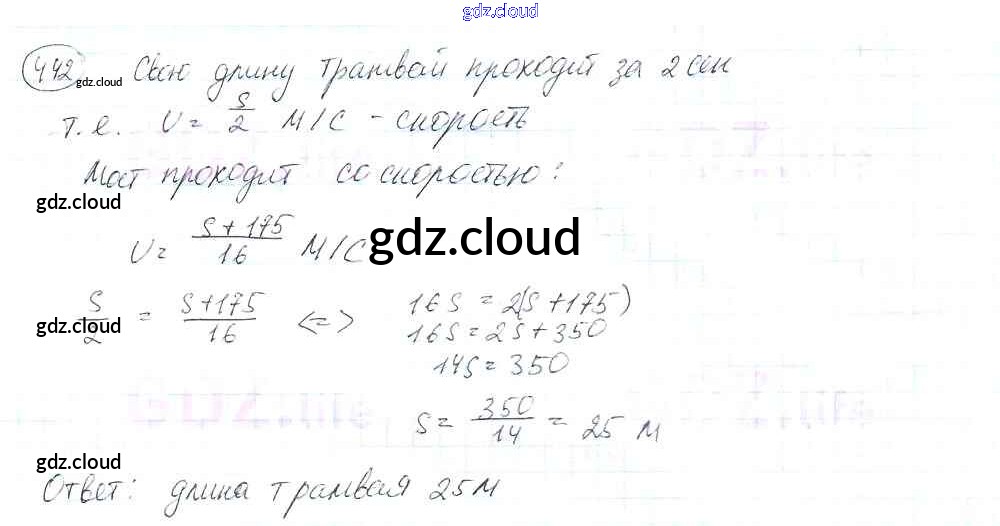 gdz.cloud
442 gdz.cloud Свою длину трамвай проходит за 2 сек
т.е. V = S/2 м/с - скорость
Мост проходит со скоростью:
gdz.cloud
V = S + 175/16 м/с gdz.cloud
S/2 = S+175/16 <=> 16S = 2(S+175)
gdz.cloud
16S = 2S + 350
14S = 350
S = 350/14 = 25 м
gdz.cloud
Ответ: длина трамвая 25м